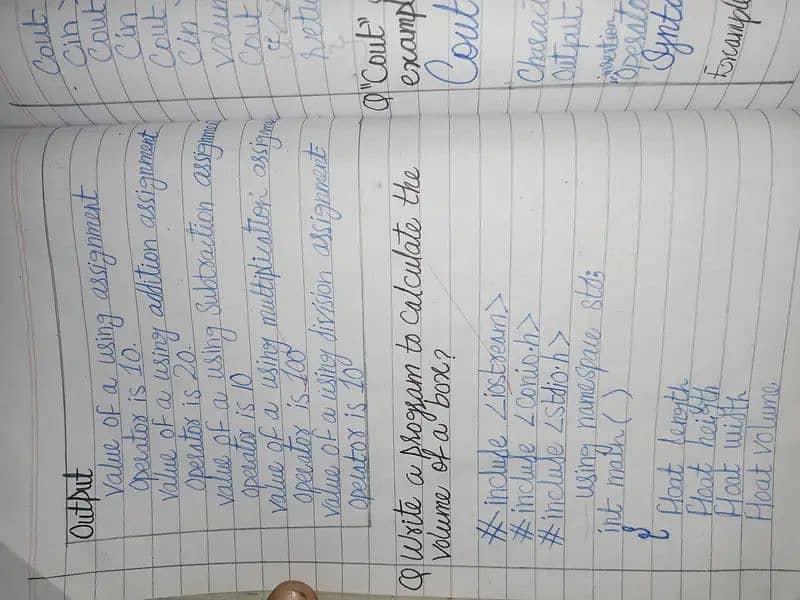 Output
Value of a using assignment
operator is 10.
Value of a using adition assignment
operator is 20.
Value of a using Subtraction
operator is 10
Value of a using multiplication
operator is 100
Value of a using division assignment
operator is 10
Q Write a program to calculate the
volume of a box?
# include <iostream>
# include <conio.h>
# include <stdio.h>
using namespace std;
int math ( )
{
float length
float height
float width
float volume
Cout
Cin
Cout
Cin
Cout
Cin
Cout
Q "Cout"
Cout
Output
"Operator